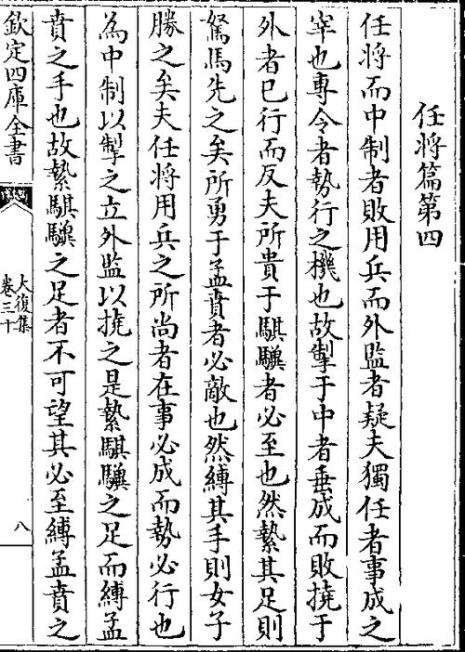 任將篇第四
任將而中制者敗用兵而外監者疑夫獨任者事成之
宰也專令者勢行之機也故掣于中者垂成而敗撓于
外者已行而反夫所貴于騏驥者必至也然縶其足則
駑馬先之矣所勇于孟賁者必敵也然縛其手則女子
勝之矣夫任將用兵之所尚者在事必成而勢必行也
為中制以掣之立外監以撓之是縶騏驥之足而縛孟
賁之手也故縶騏驥之足者不可望其必至縛孟賁之
欽定四庫全書
大復集
卷三十
八